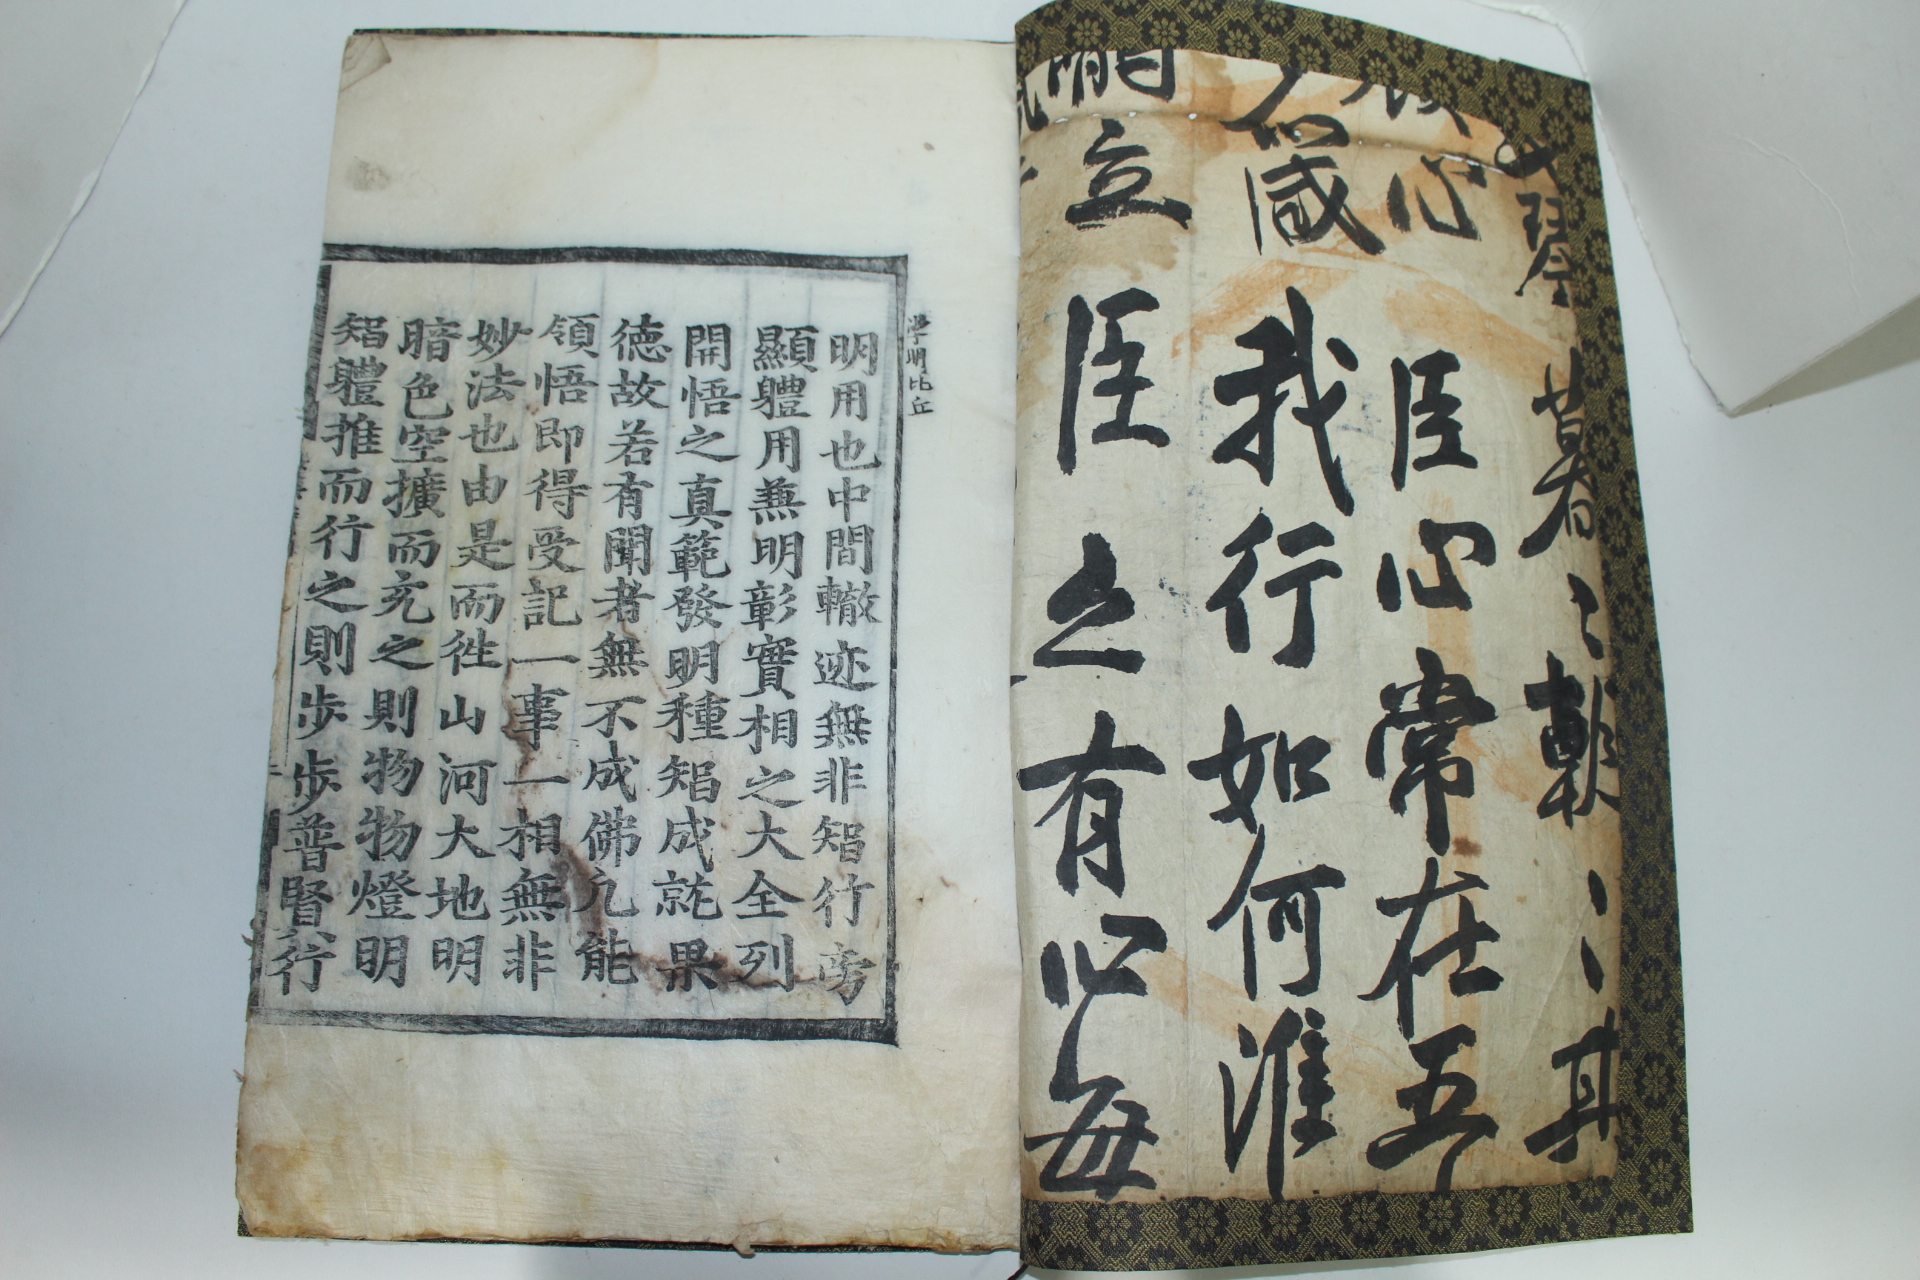 琴暮〻朝〻其
心臣心常在五
咸我行如何淮
立臣之有心每
明比丘
明用也中間轍迹無非智行旁
顯體用兼明彰實相之大全列
開悟之真範發明種智成就果
德故若有聞者無不成佛凢能
領悟即得受記一事一相無非
妙法也由是而徃山河大地明
暗色空擴而充之則物物燈明
智體推而行之則步步普賢行